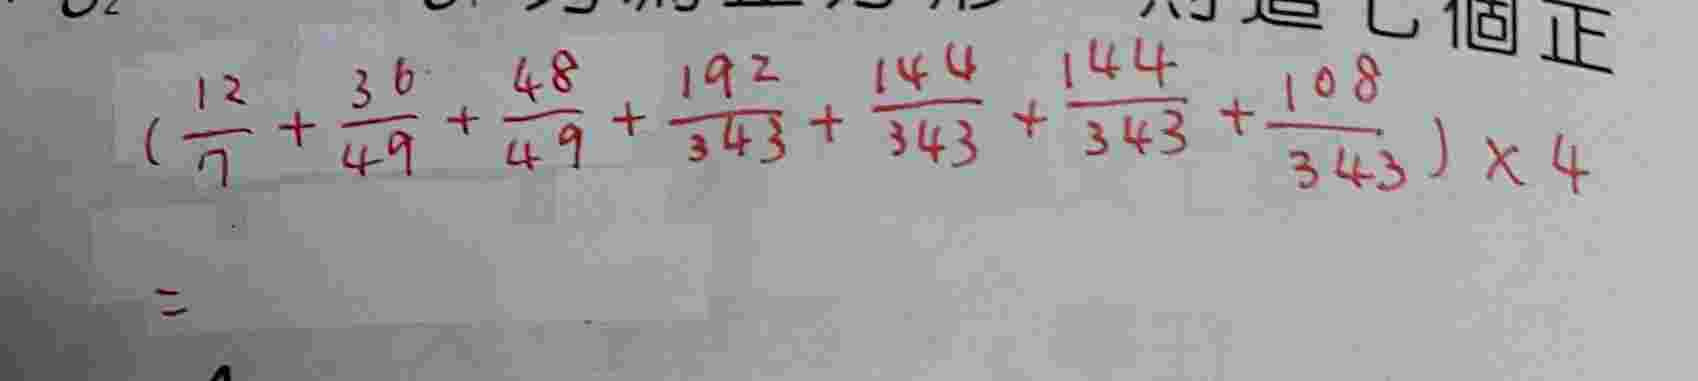 個正
(12/7 + 36/49 + 48/49 + 192/343 + 144/343 + 144/343 + 108/343) × 4
=